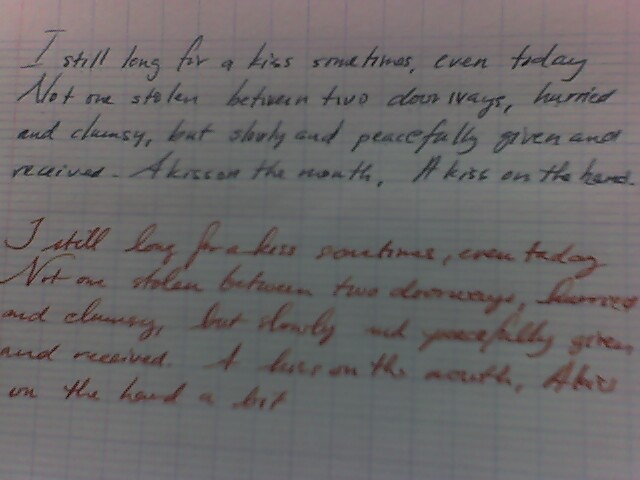 I still long for a kiss sometimes, even today
Not one stolen between two doorways, hurried
and clumsy, but slowly and peacefully given and
received. A kiss on the mouth, A kiss on the hand.
I still long for a kiss sometimes, even today
Not one stolen between two doorways, hurried
and clumsy, but slowly and peacefully given
and received. A kiss on the mouth, A kiss
on the hand a bit